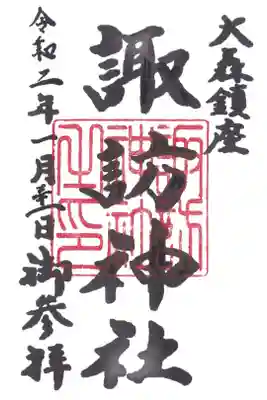 大森鎮座
諏訪神社
令和二年一月十一日御参拝